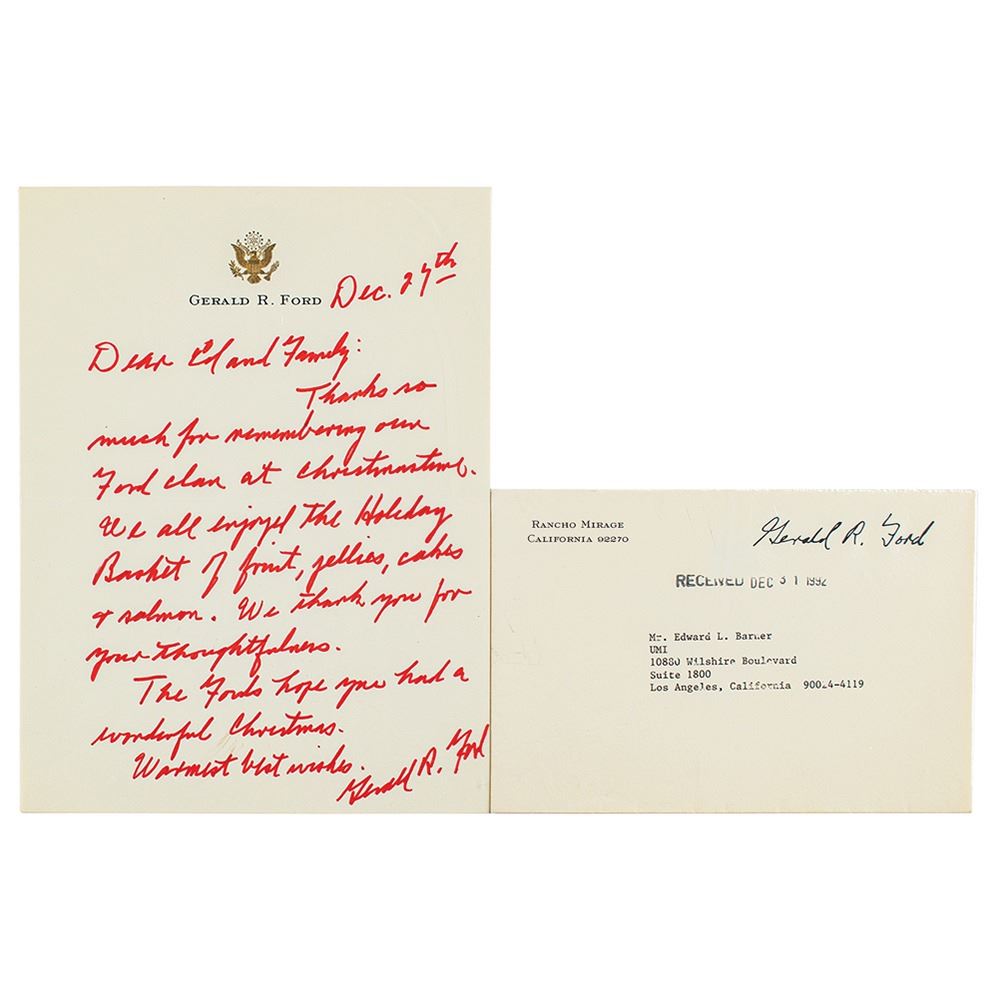 GERALD R. FORD
Dec. 27th
Dear Ed and Family:
Thanks so
much for remembering our
Ford clan at Christmastime.
We all enjoyed the Holiday
Basket of fruit, jellies, cakes
& salmon. We thank you for
your thoughtfulness.
The Fords hope you had a
wonderful Christmas.
Warmest best wishes.
Gerald R. Ford
RANCHO MIRAGE
CALIFORNIA 92270
Gerald R. Ford
RECEIVED DEC 31 1992
Mr. Edward L. Barner
UMI
10880 Wilshire Boulevard
Suite 1800
Los Angeles, California 90024-4119